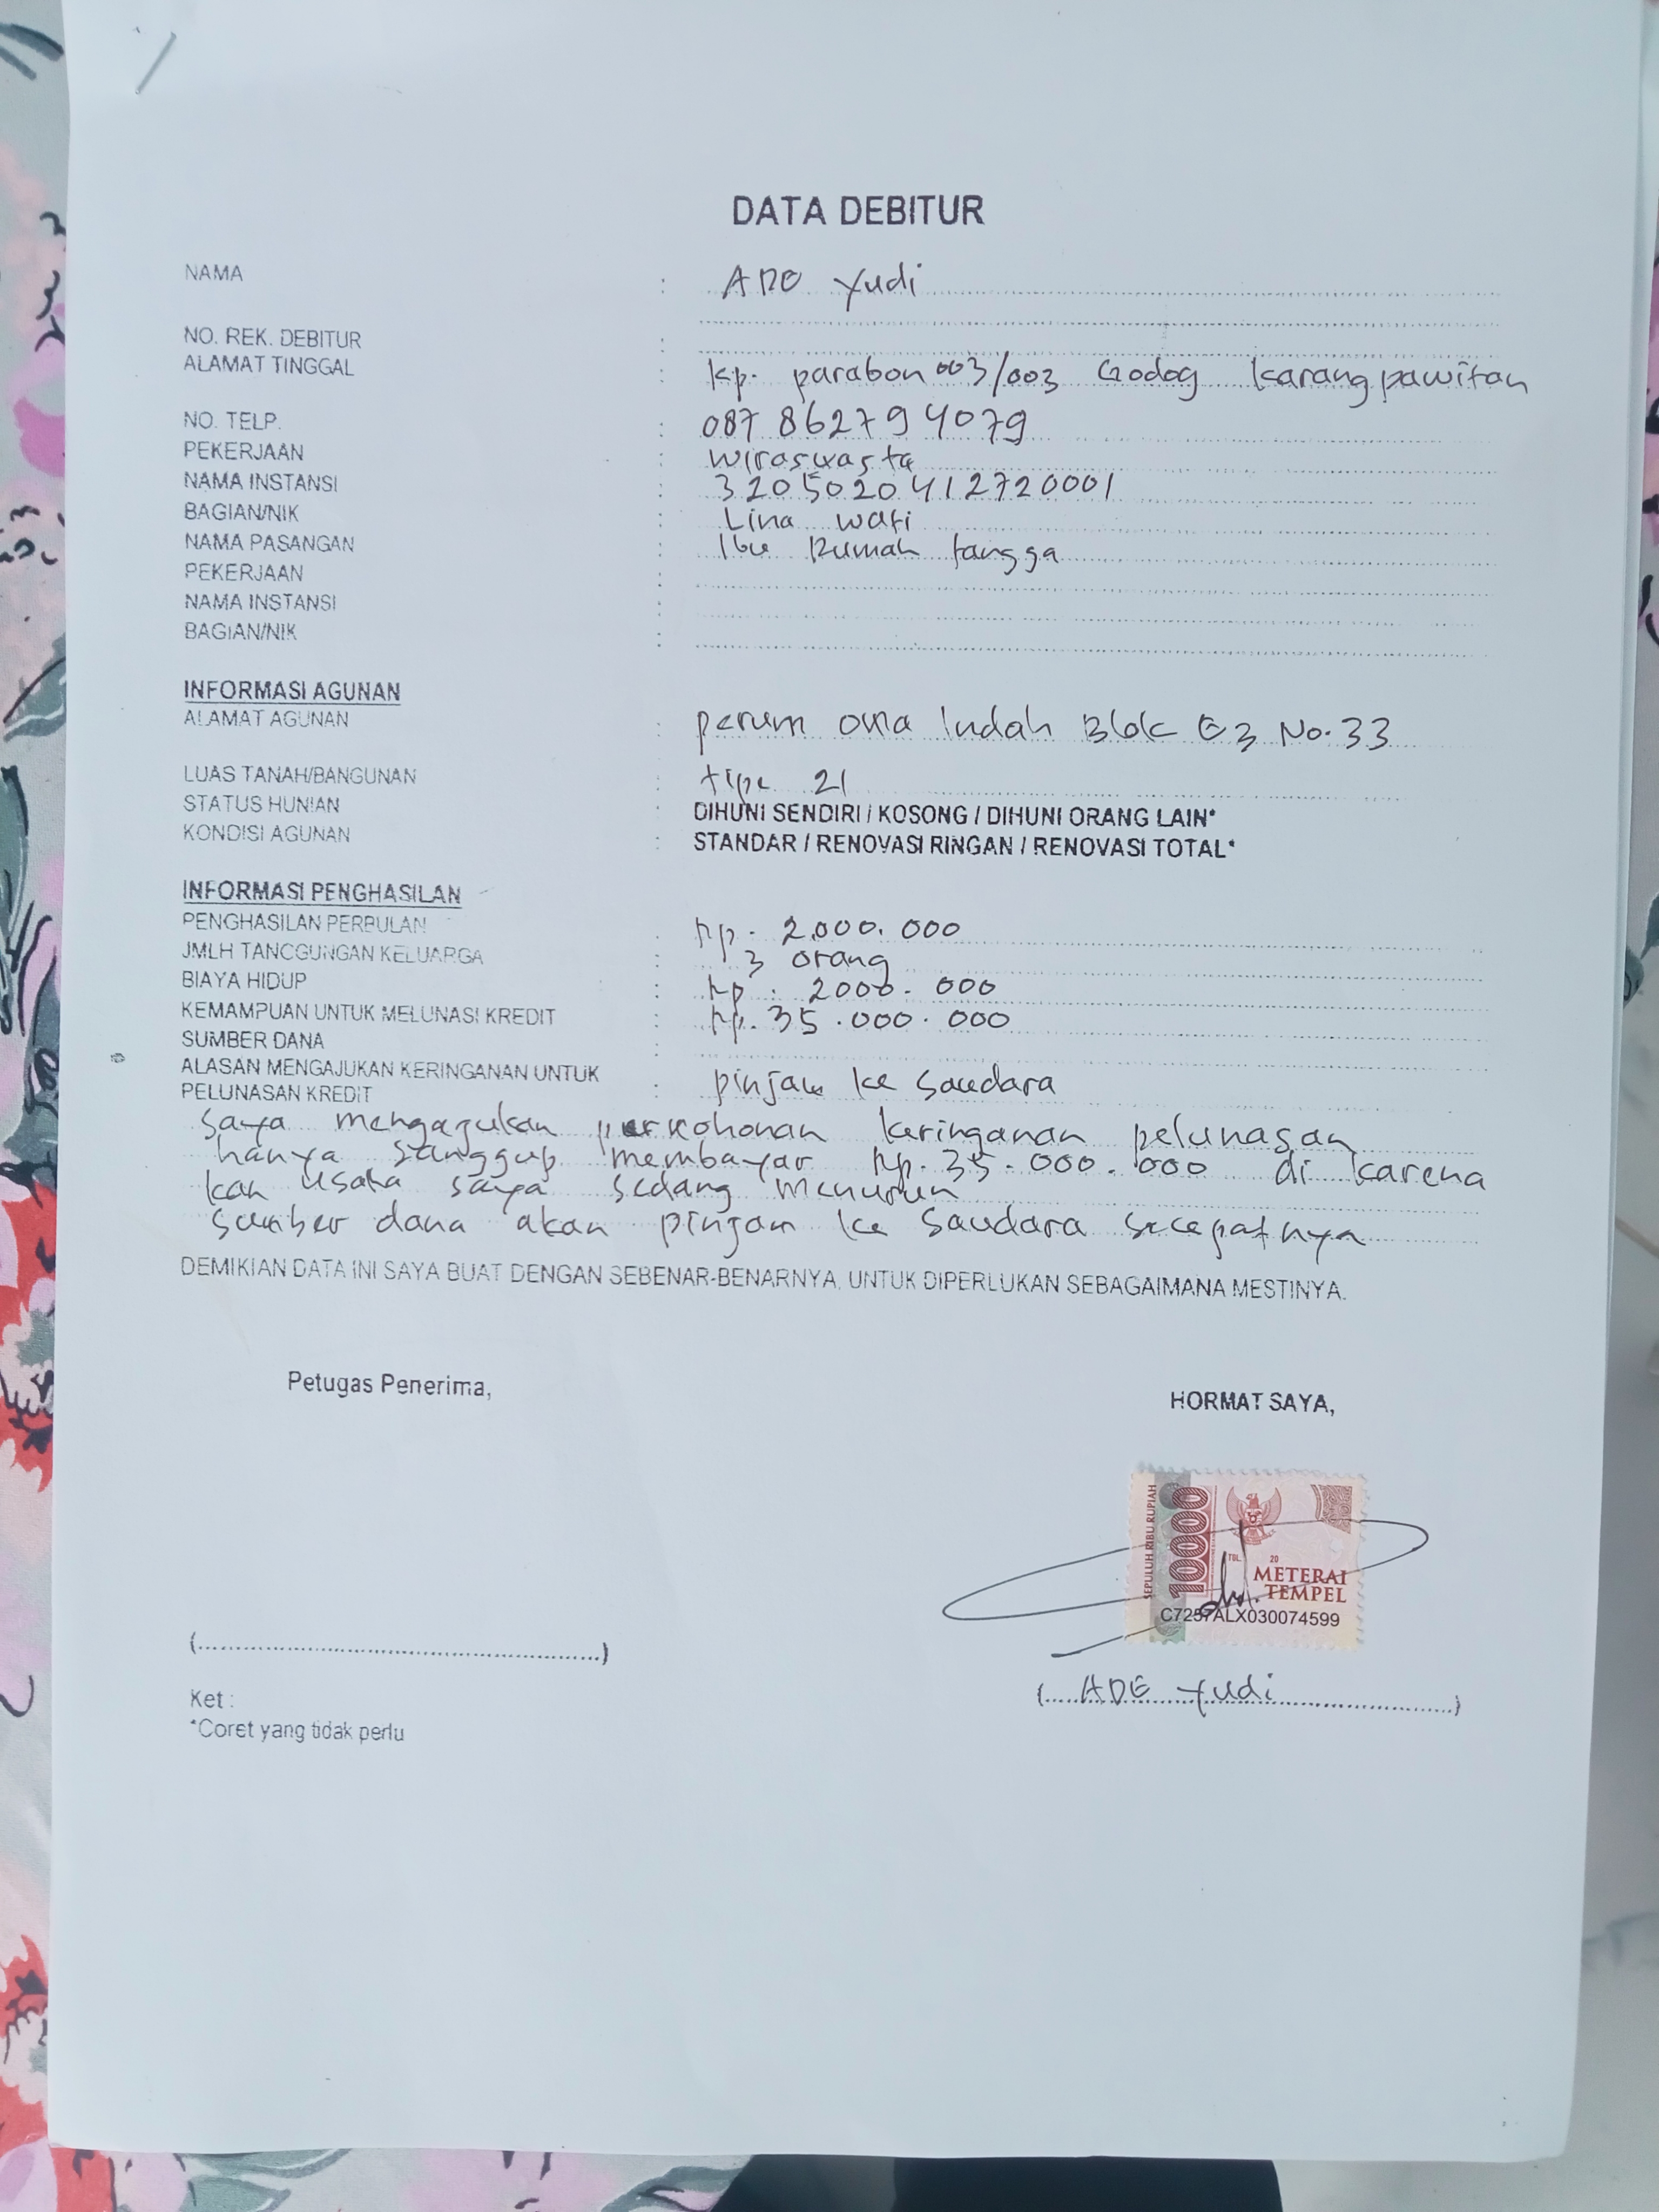 DATA DEBITUR
NAMA : ADE Yudi
NO. REK. DEBITUR :
ALAMAT TINGGAL : Kp. parabon 003/003 Godog Karangpawitan
NO. TELP. : 087 862794079
PEKERJAAN : Wiraswasta
NAMA INSTANSI : 3205020412720001
BAGIAN/NIK : Lina wati
NAMA PASANGAN : Ibu Rumah tangga
PEKERJAAN :
NAMA INSTANSI :
BAGIAN/NIK :
INFORMASI AGUNAN
ALAMAT AGUNAN : perum Indah Blok E3 No. 33
LUAS TANAH/BANGUNAN : tipe 21
STATUS HUNIAN : DIHUNI SENDIRI / KOSONG / DIHUNI ORANG LAIN*
KONDISI AGUNAN : STANDAR / RENOVASI RINGAN / RENOVASI TOTAL*
INFORMASI PENGHASILAN
PENGHASILAN PERBULAN : Rp. 2.000.000
JMLH TANGGUNGAN KELUARGA : 3 orang
BIAYA HIDUP : Rp. 2000.000
KEMAMPUAN UNTUK MELUNASI KREDIT : Rp. 35.000.000
SUMBER DANA :
ALASAN MENGAJUKAN KERINGANAN UNTUK
PELUNASAN KREDIT : pinjam ke Saudara
Saya mengajukan keringanan pelunasan
hanya sanggup membayar Rp. 35.000.000 di karena
kan usaha saya sedang menurun
sumber dana akan pinjam ke Saudara secepatnya
DEMIKIAN DATA INI SAYA BUAT DENGAN SEBENAR-BENARNYA, UNTUK DIPERLUKAN SEBAGAIMANA MESTINYA.
Petugas Penerima,
HORMAT SAYA,
SEPULUH RIBU RUPIAH
10000
TGL. 20
METERAI
TEMPEL
C7257ALX030074599
(..........)
(ADE Yudi)
Ket :
*Coret yang tidak perlu